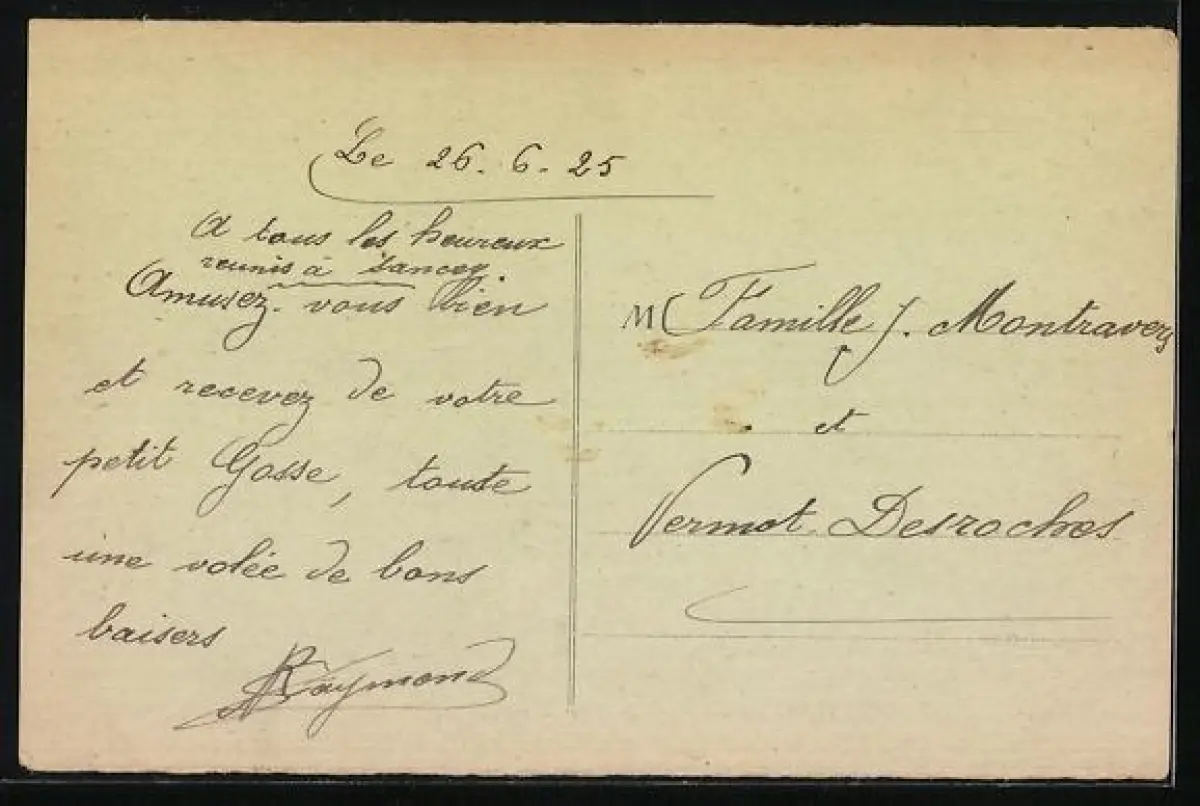 Le 26.6.25
A tous les heureux
reunis à Sancey.
Amusez-vous bien
et recevez de votre
petit Gosse, toute
une volée de bons
baisers
Raymond
M Famille J. Montravers
et
Vermot Desroches